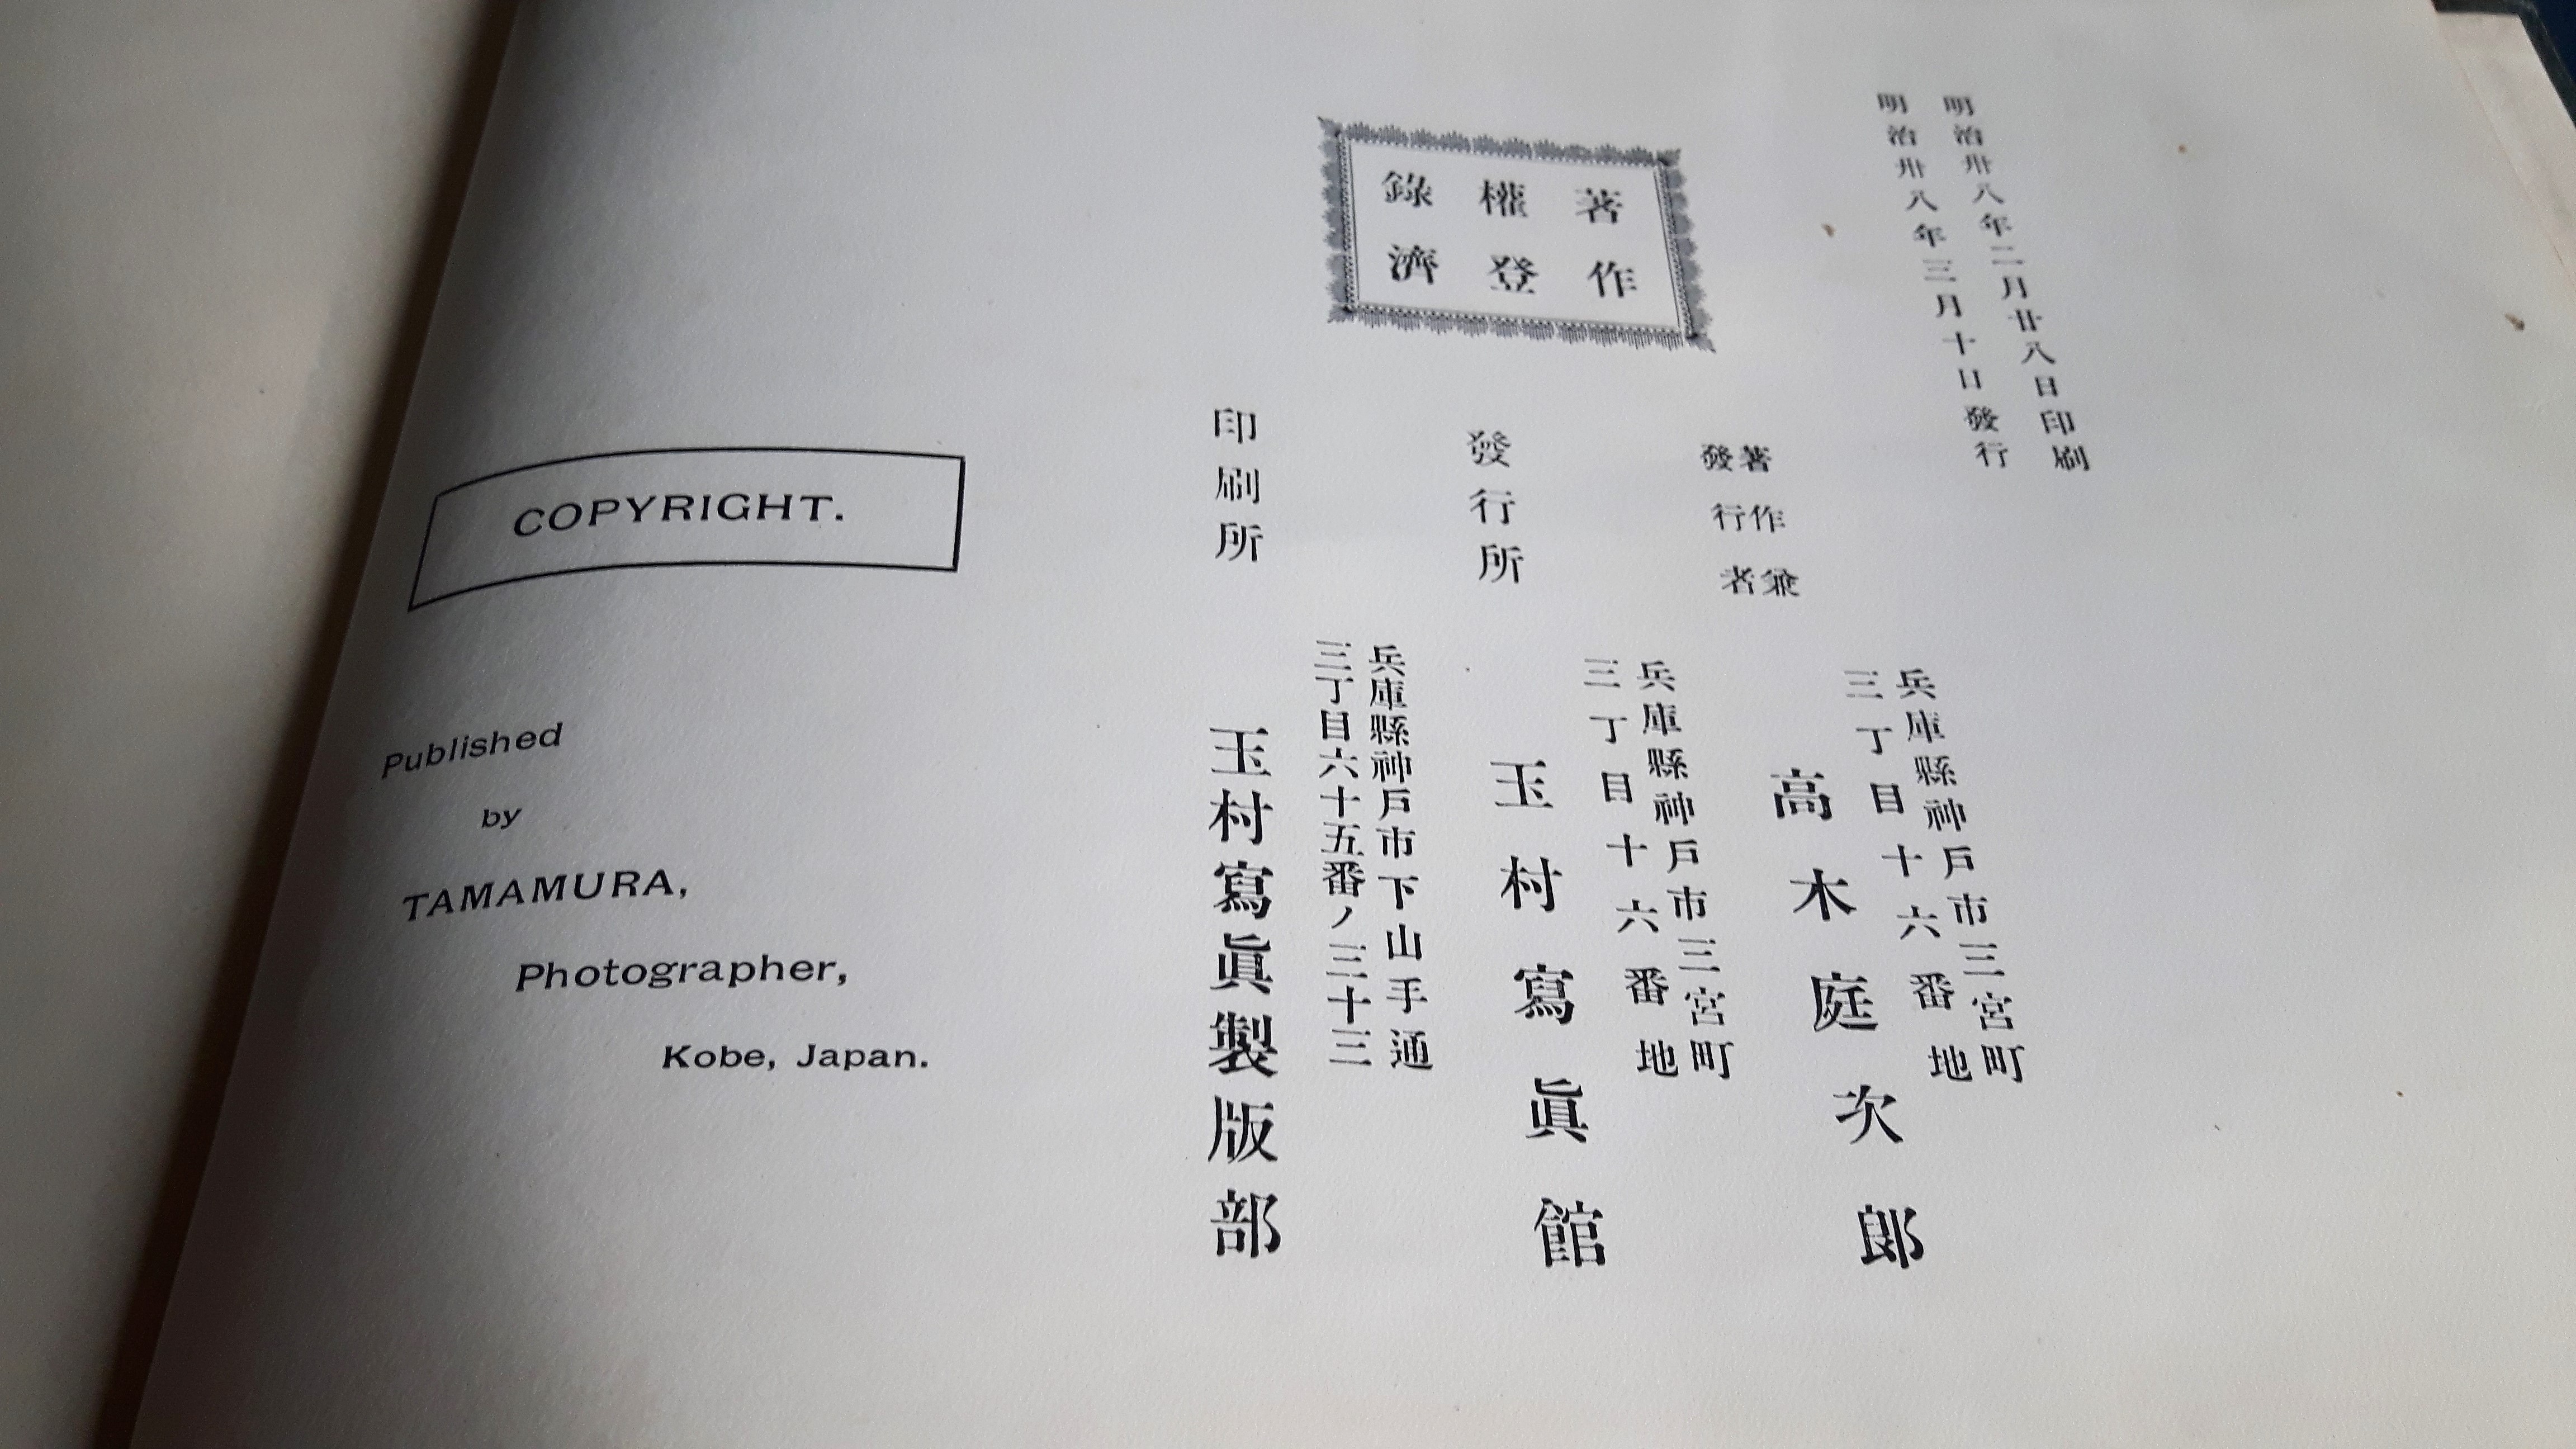 明治卅八年二月廿八日印刷
明治卅八年三月十日發行
著作
權登
錄濟
著作兼
發行者
兵庫縣神戶市三宮町
三丁目十六番地
高木庭次郎
發行所
兵庫縣神戶市三宮町
三丁目十六番地
玉村寫眞館
印刷所
兵庫縣神戶市下山手通
三丁目六十五番ノ三十三
玉村寫眞製版部
COPYRIGHT.
Published
by
TAMAMURA,
Photographer,
Kobe, Japan.